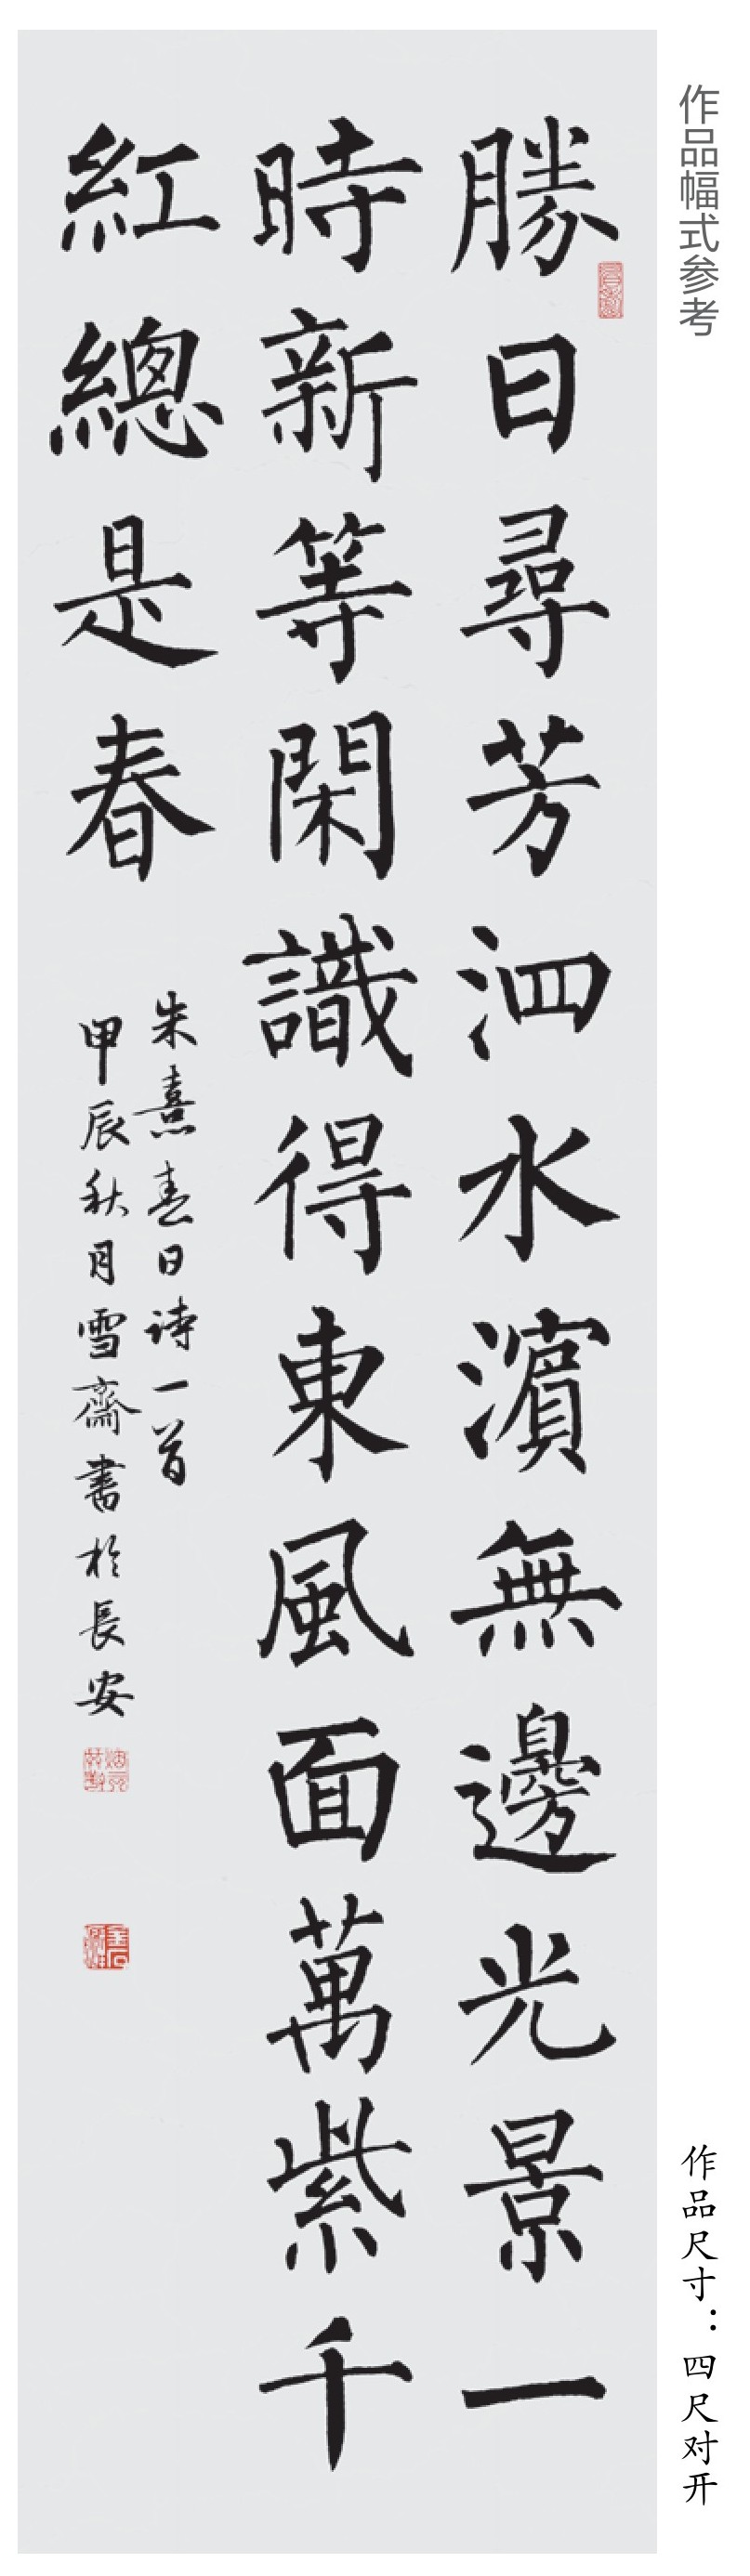 作品幅式参考
勝日尋芳泗水濱無邊光景一
時新等閑識得東風面萬紫千
紅總是春
朱熹春日诗一首
甲辰秋月雪齋書於長安
作品尺寸：四尺对开